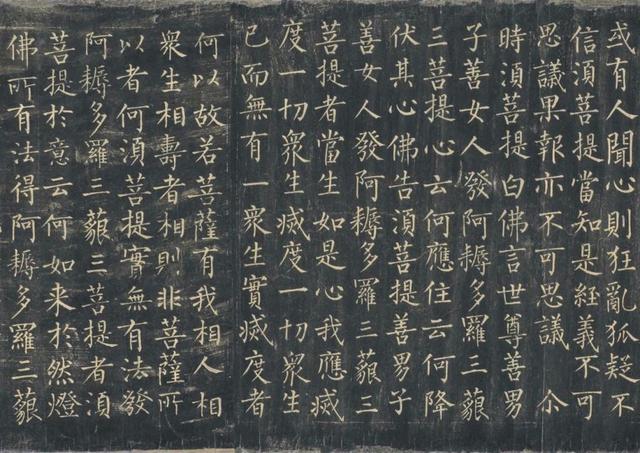 或有人聞心則狂亂狐疑不
信湏菩提當知是經義不可
思議果報亦不可思議 尒
時湏菩提白佛言世尊善男
子善女人發阿耨多羅三藐
三菩提心云何應住云何降
伏其心佛告湏菩提善男子
善女人發阿耨多羅三藐三
菩提者當生如是心我應滅
度一切衆生滅度一切衆生
已而無有一衆生實滅度者
何以故若菩薩有我相人相
衆生相壽者相則非菩薩所
以者何湏菩提實無有法發
阿耨多羅三藐三菩提者湏
菩提於意云何如来於然燈
佛所有法得阿耨多羅三藐